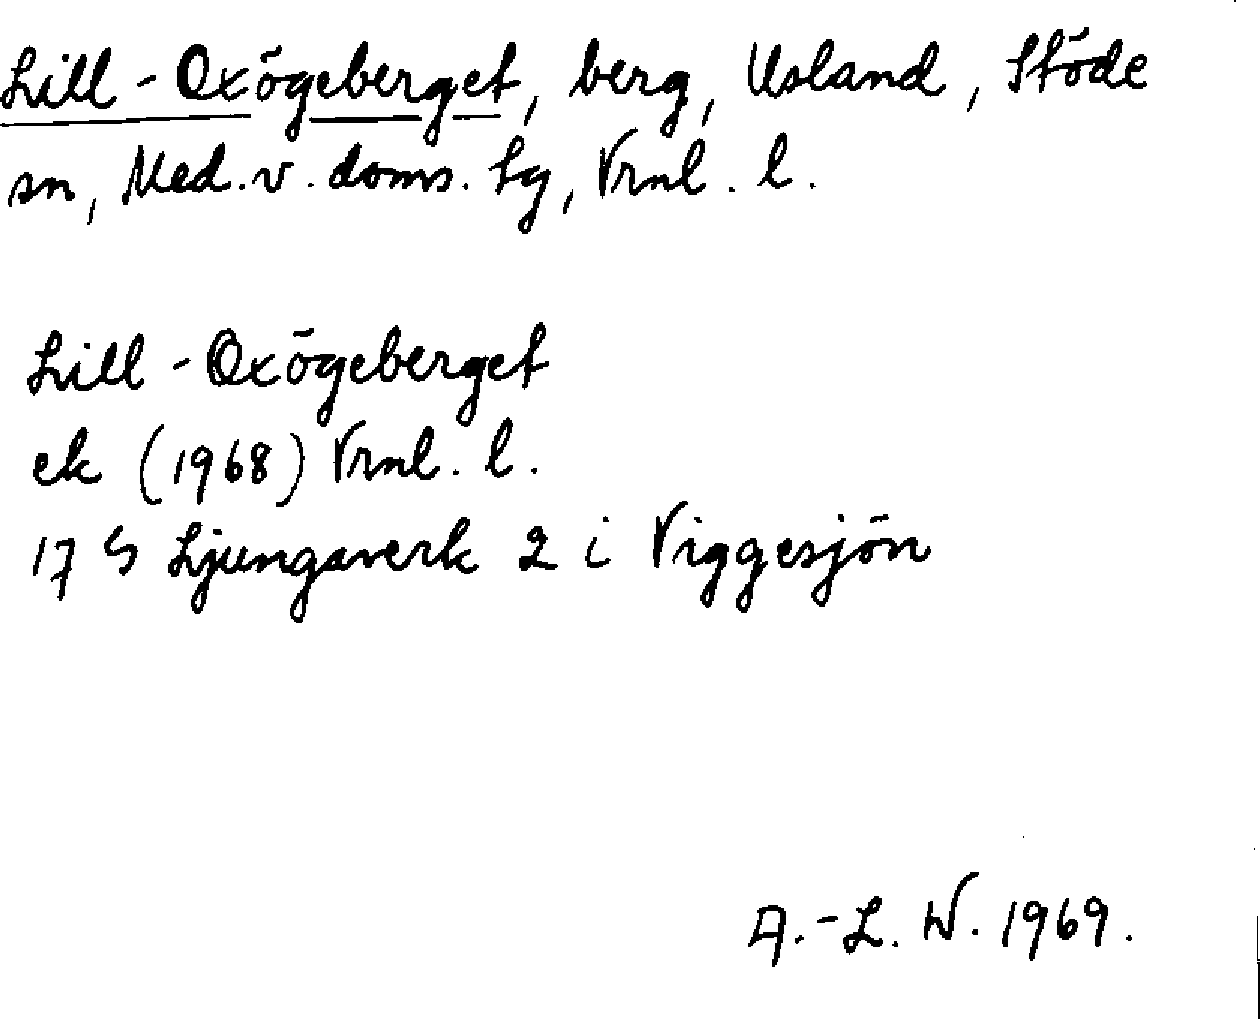 Lill-Oxögeberget, berg, Usland, Stöde
sn, Med. v. doms. tg, Vrnl. l.
Lill-Oxögeberget
ek (1968) Vrnl. l.
17 G Ljungaverk 2 i Viggesjön
A.-L. W. 1969.